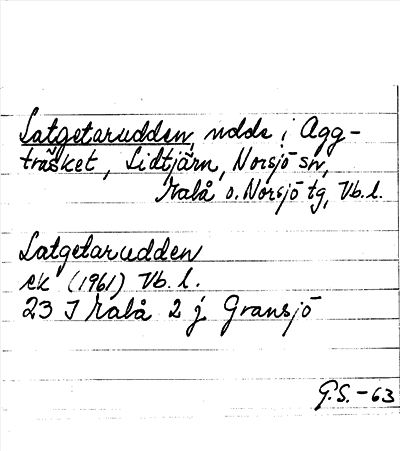 Latgetarudden, udde i Agg-
träsket, Lidtjärn, Norsjö sn,
Malå o. Norsjö tg, Vb. l.
Latgetarudden
ek (1961) Vb. l.
23 J Malå 2 j Gransjö
G.S. -63